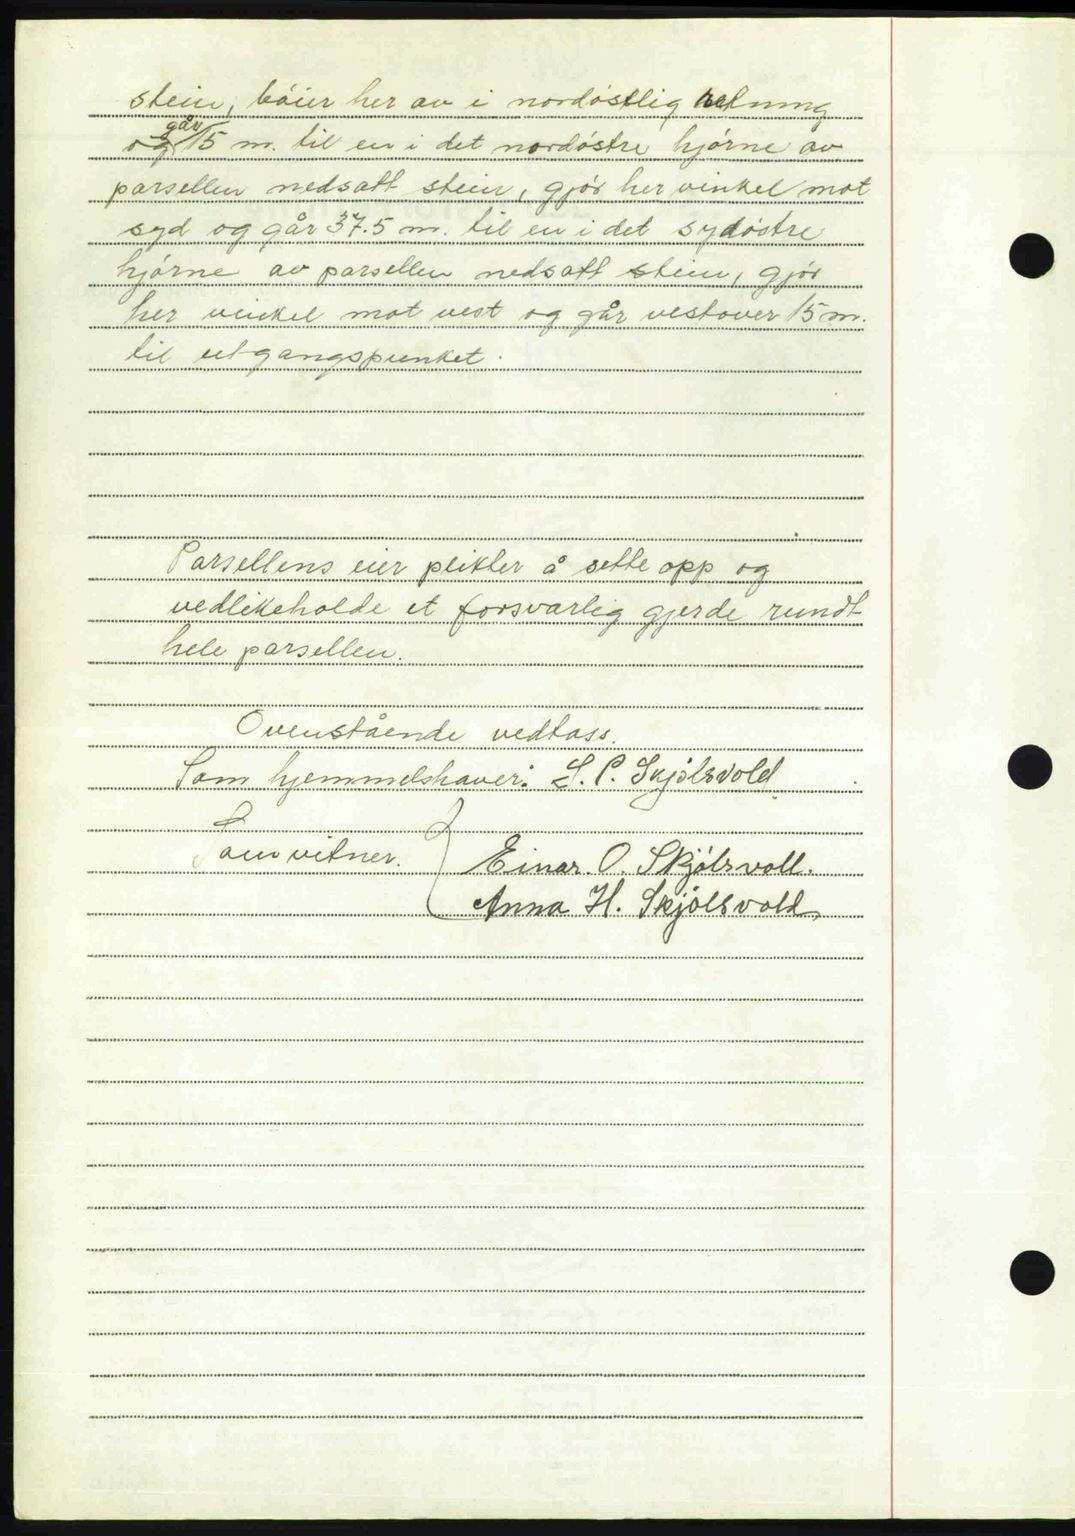 stein, bøier her av i nordøstlig retning
og går 15 m. til en i det nordøstre hjørne av
parsellen nedsatt stein, gjør her vinkel mot
syd og går 37.5 m. til en i det sydøstre
hjørne av parsellen nedsatt stein, gjør
her vinkel mot vest og går vestover 15 m.
til utgangspunket.
Parsellens eier plikter å sette opp og
vedlikeholde et forsvarlig gjerde rundt
hele parsellen.
Ovenstående vedtass.
Som hjemmelshaver: S. P. Skjølsvold
Som vitner.
Einar. O. Skjølsvoll.
Anna H. Skjølsvold,